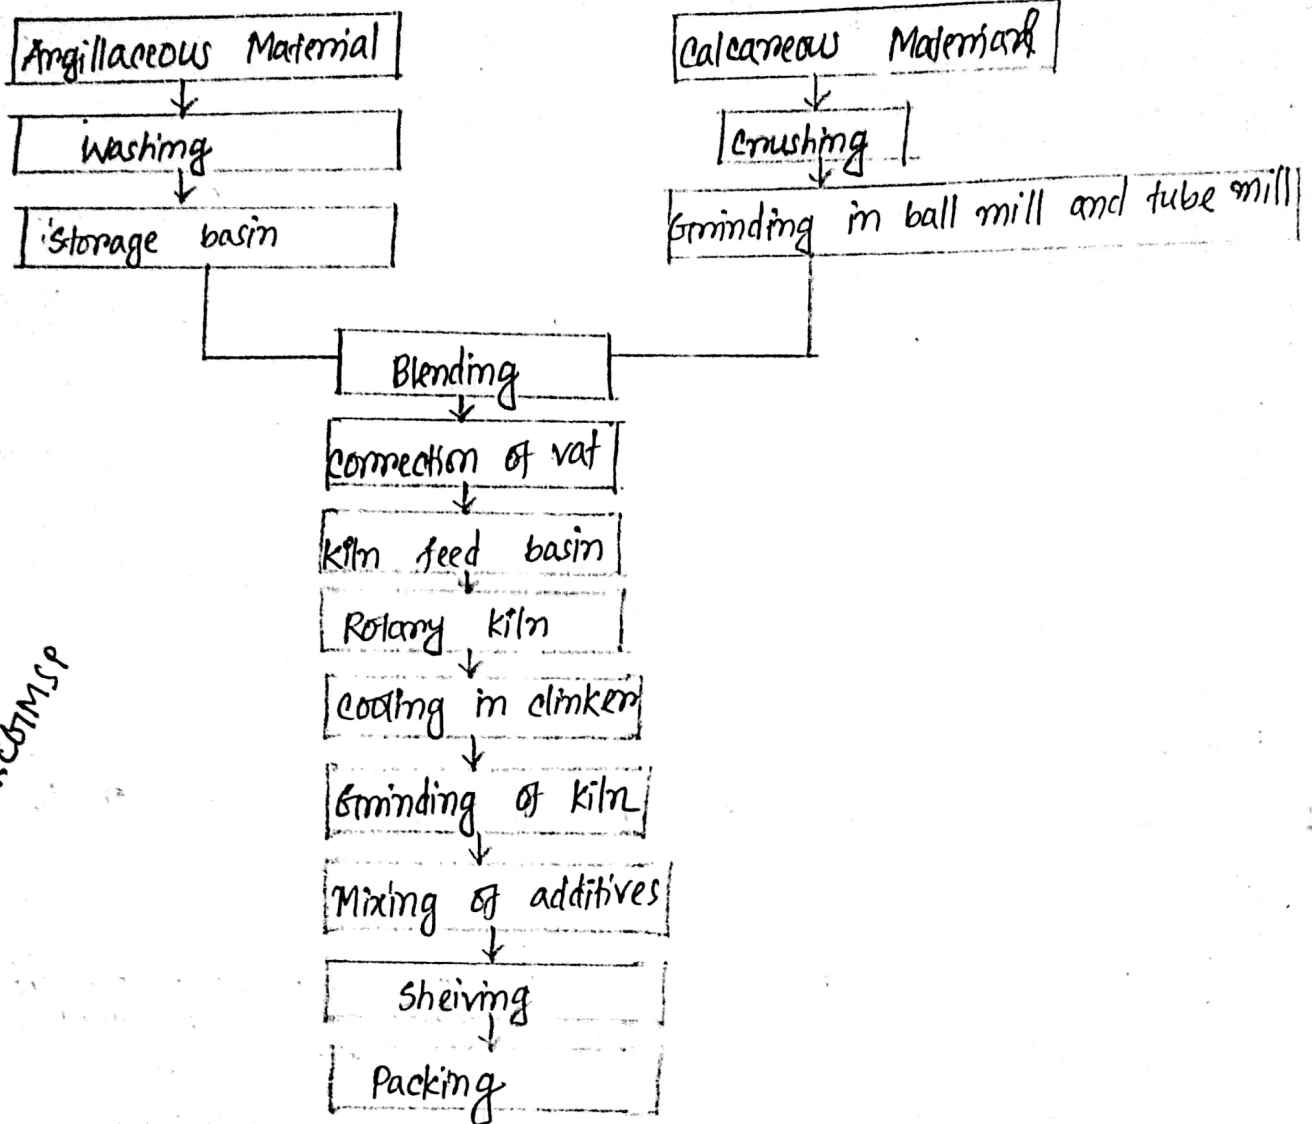 Argillaceous Material
Calcareous Material
Washing
Crushing
Storage basin
Grinding in ball mill and tube mill
Blending
Correction of vat
Kiln feed basin
Rotary kiln
Cooling in clinker
Grinding of kiln
Mixing of additives
Sheiving
Packing